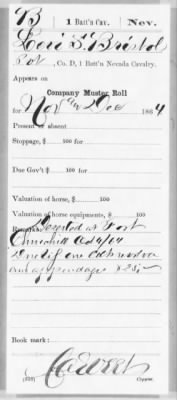 B | 1 Batt'n Cav. | Nev.
Levi S. Bristol
Pvt, Co. D, 1 Batt'n Nevada Cavalry.
Appears on
Company Muster Roll
for Nov and Dec, 1864
Present or absent
Stoppage, $ 100 for
Due Gov't $ 100 for
Valuation of horse, $ 100
Valuation of horse equipments, $ 100
Remarks: Deserted at Fort
Churchill Oct 4/64
Due U.S. for one
and appendages $
Book mark:
Copyist.